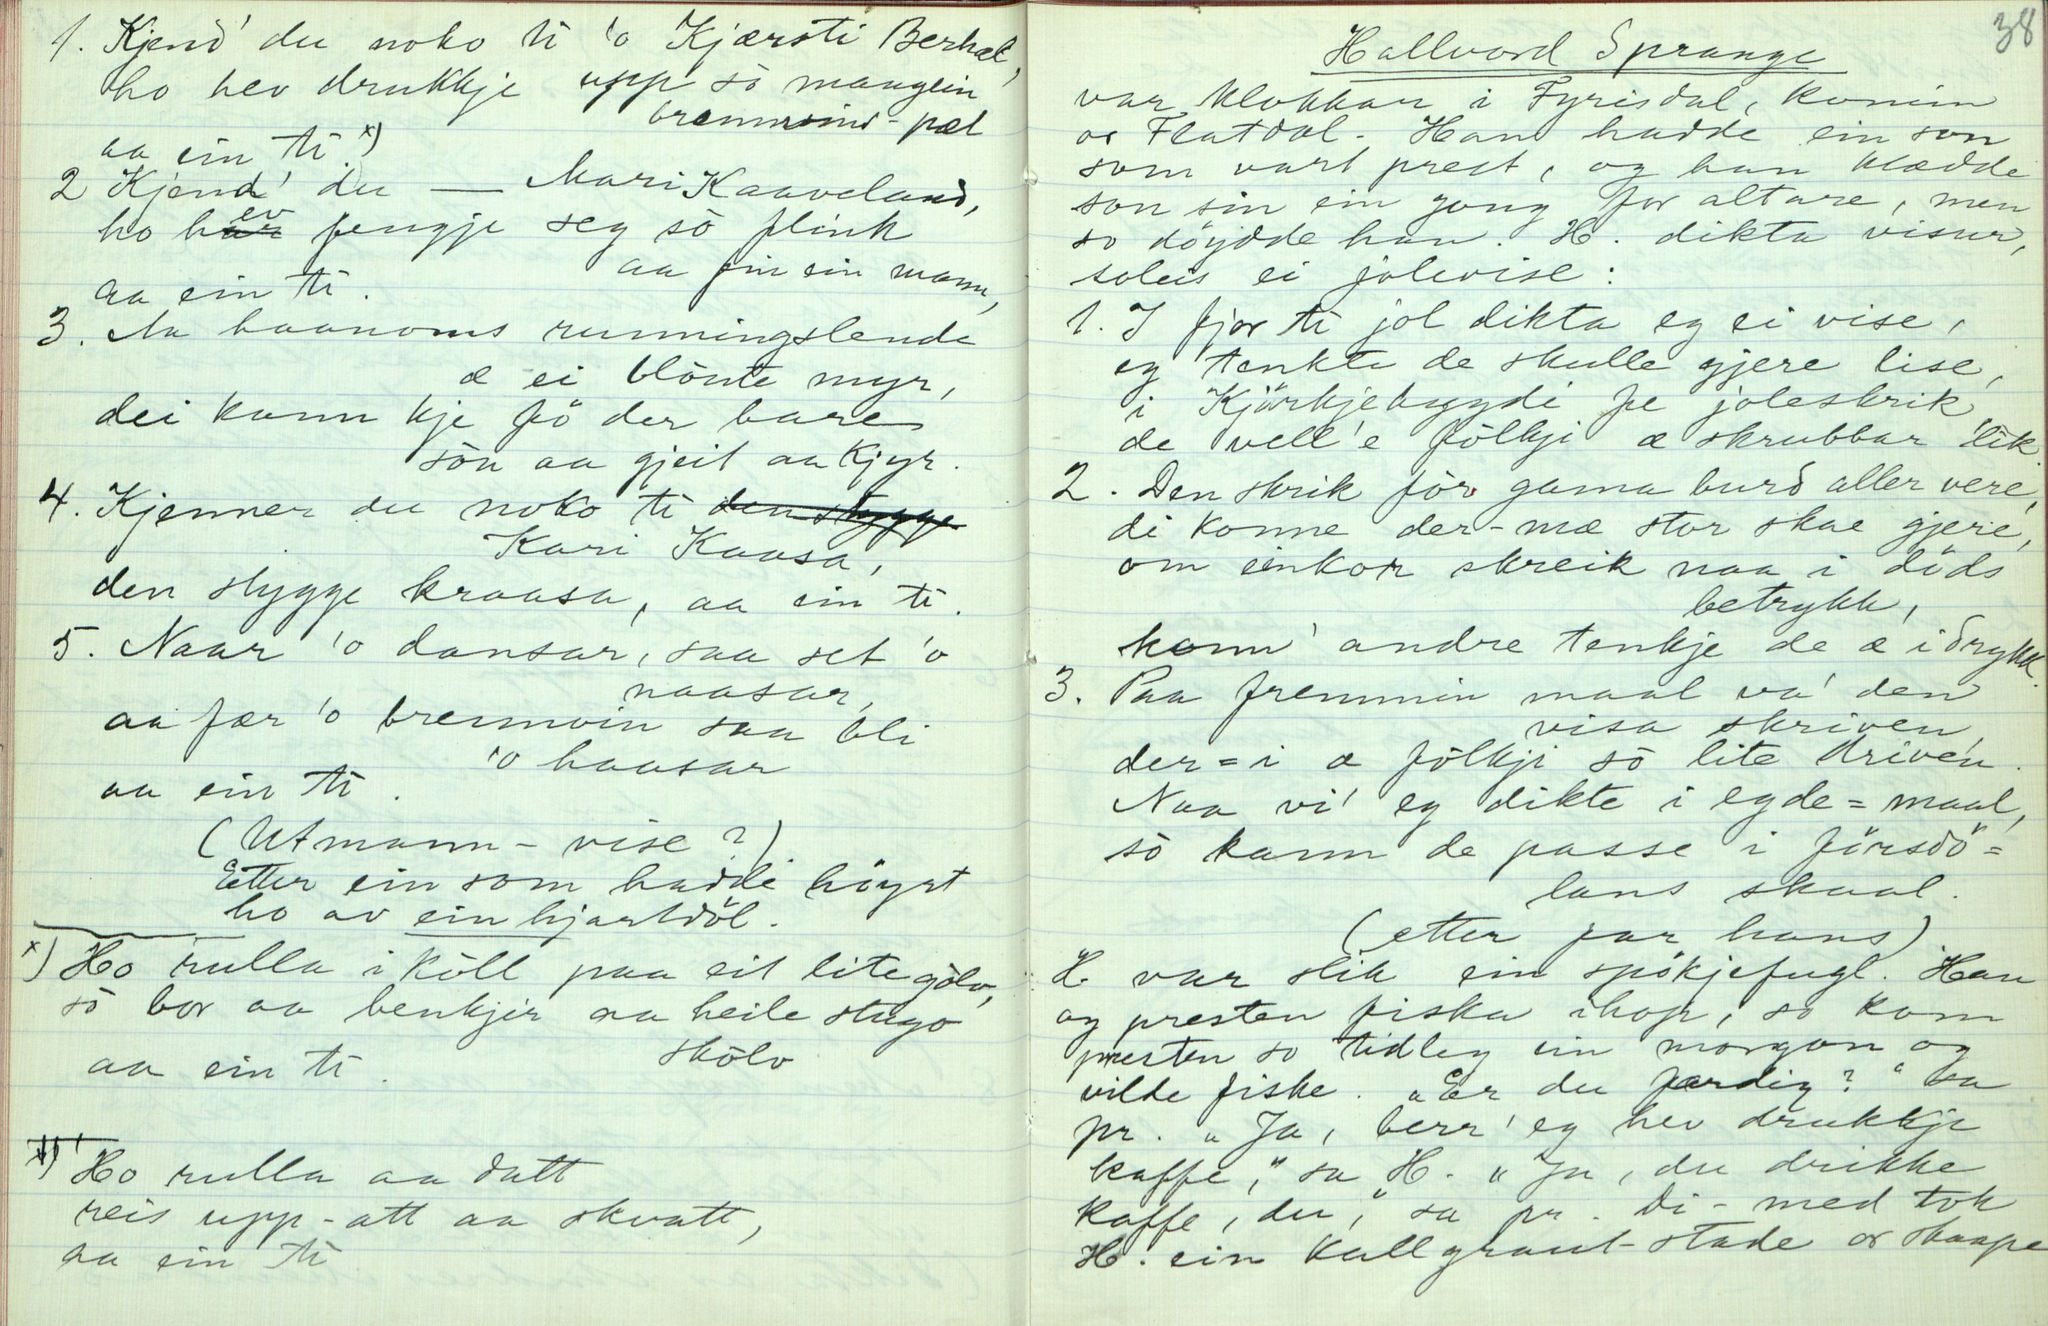 1. Kjend' du noko ti 'o Kjærsti Berhæl,
ho hev drukkje upp sò mangein
brennvins-pæl
aa ein ti. x)
2 Kjend' du — Mari Kaaveland,
ho har ev fengje seg sò flink
aa fin ein mann,
aa ein ti.
3. Aa baanoms runningslende
æ ei blònte myr,
dei kann kje fö der bare
sòn aa gjeit aa kjyr.
4. Kjenner du noko ti den stygge
Kari Kaasa,
den stygge kraasa, aa ein ti.
5. Naar 'o dansar, saa set 'o
naasar,
aa fær 'o brennvin saa bli
'o haasar
aa ein ti.
(Utmann-vise?)
Etter ein som hadde høyrt
ho av ein hjartdöl.
x) Ho rulla i köll paa eit lite gòlv,
sò bor aa benkjir aa heile stugo
skòlv
aa ein ti.
Ho rulla aa datt
reis upp-att aa skvatt,
aa ein ti
38
Hallvord Sprange
var klokkar i Fyrisdal, komin
or Flatdal. Han hadde ein son
som vart prest, og han klædde
son sin ein gong for altare, men
so döydde han. H. dikta visur,
soleis ei jolevise:
1. I fjor ti jol dikta eg ei vise,
eg tenkte de skulle gjere lise,
i Kjörkjebygdi fe joleskrik,
de vell'e fòlkji æ skrubbar lik.
2. Den skrik för gama burd aller vere,
di konne der-mæ stor skae gjere,
om einkor skreik naa i döds
betrykk,
konn' andre tenkje de æ i drykk.
3. Paa fremmin maal va' den
visa skriven,
der=i æ fòlkji sò lite driven.
Naa vi' eg dikte i egde=maal,
sò kann de passe i försdö=
lans skaal.
(etter far hans)
H. var slik ein spökjefugl. Han
og presten fiska ihop, so kom
presten so tidleg ein morgon og
vilde fiske. "Er du færdig?" sa
pr. "Ja, berr' eg hev drukkje
kaffe," sa H. "Ja, du drikke
kaffe, du," sa pr. Di-med tok
H. ein kallgraut-stade or skaape